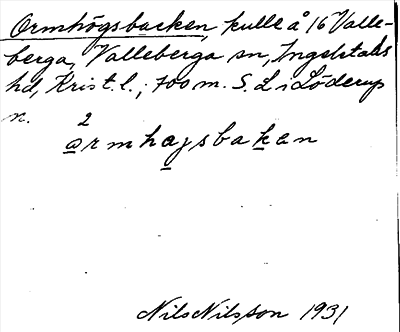 Ormhögsbacken, kulle å 16 Valle-
berga, Valleberga sn, Ingelstads
hd, Krist. l.; 700 m. S. L i Löderup
n. 2
armhagsbakan
Nils Nilsson 1931